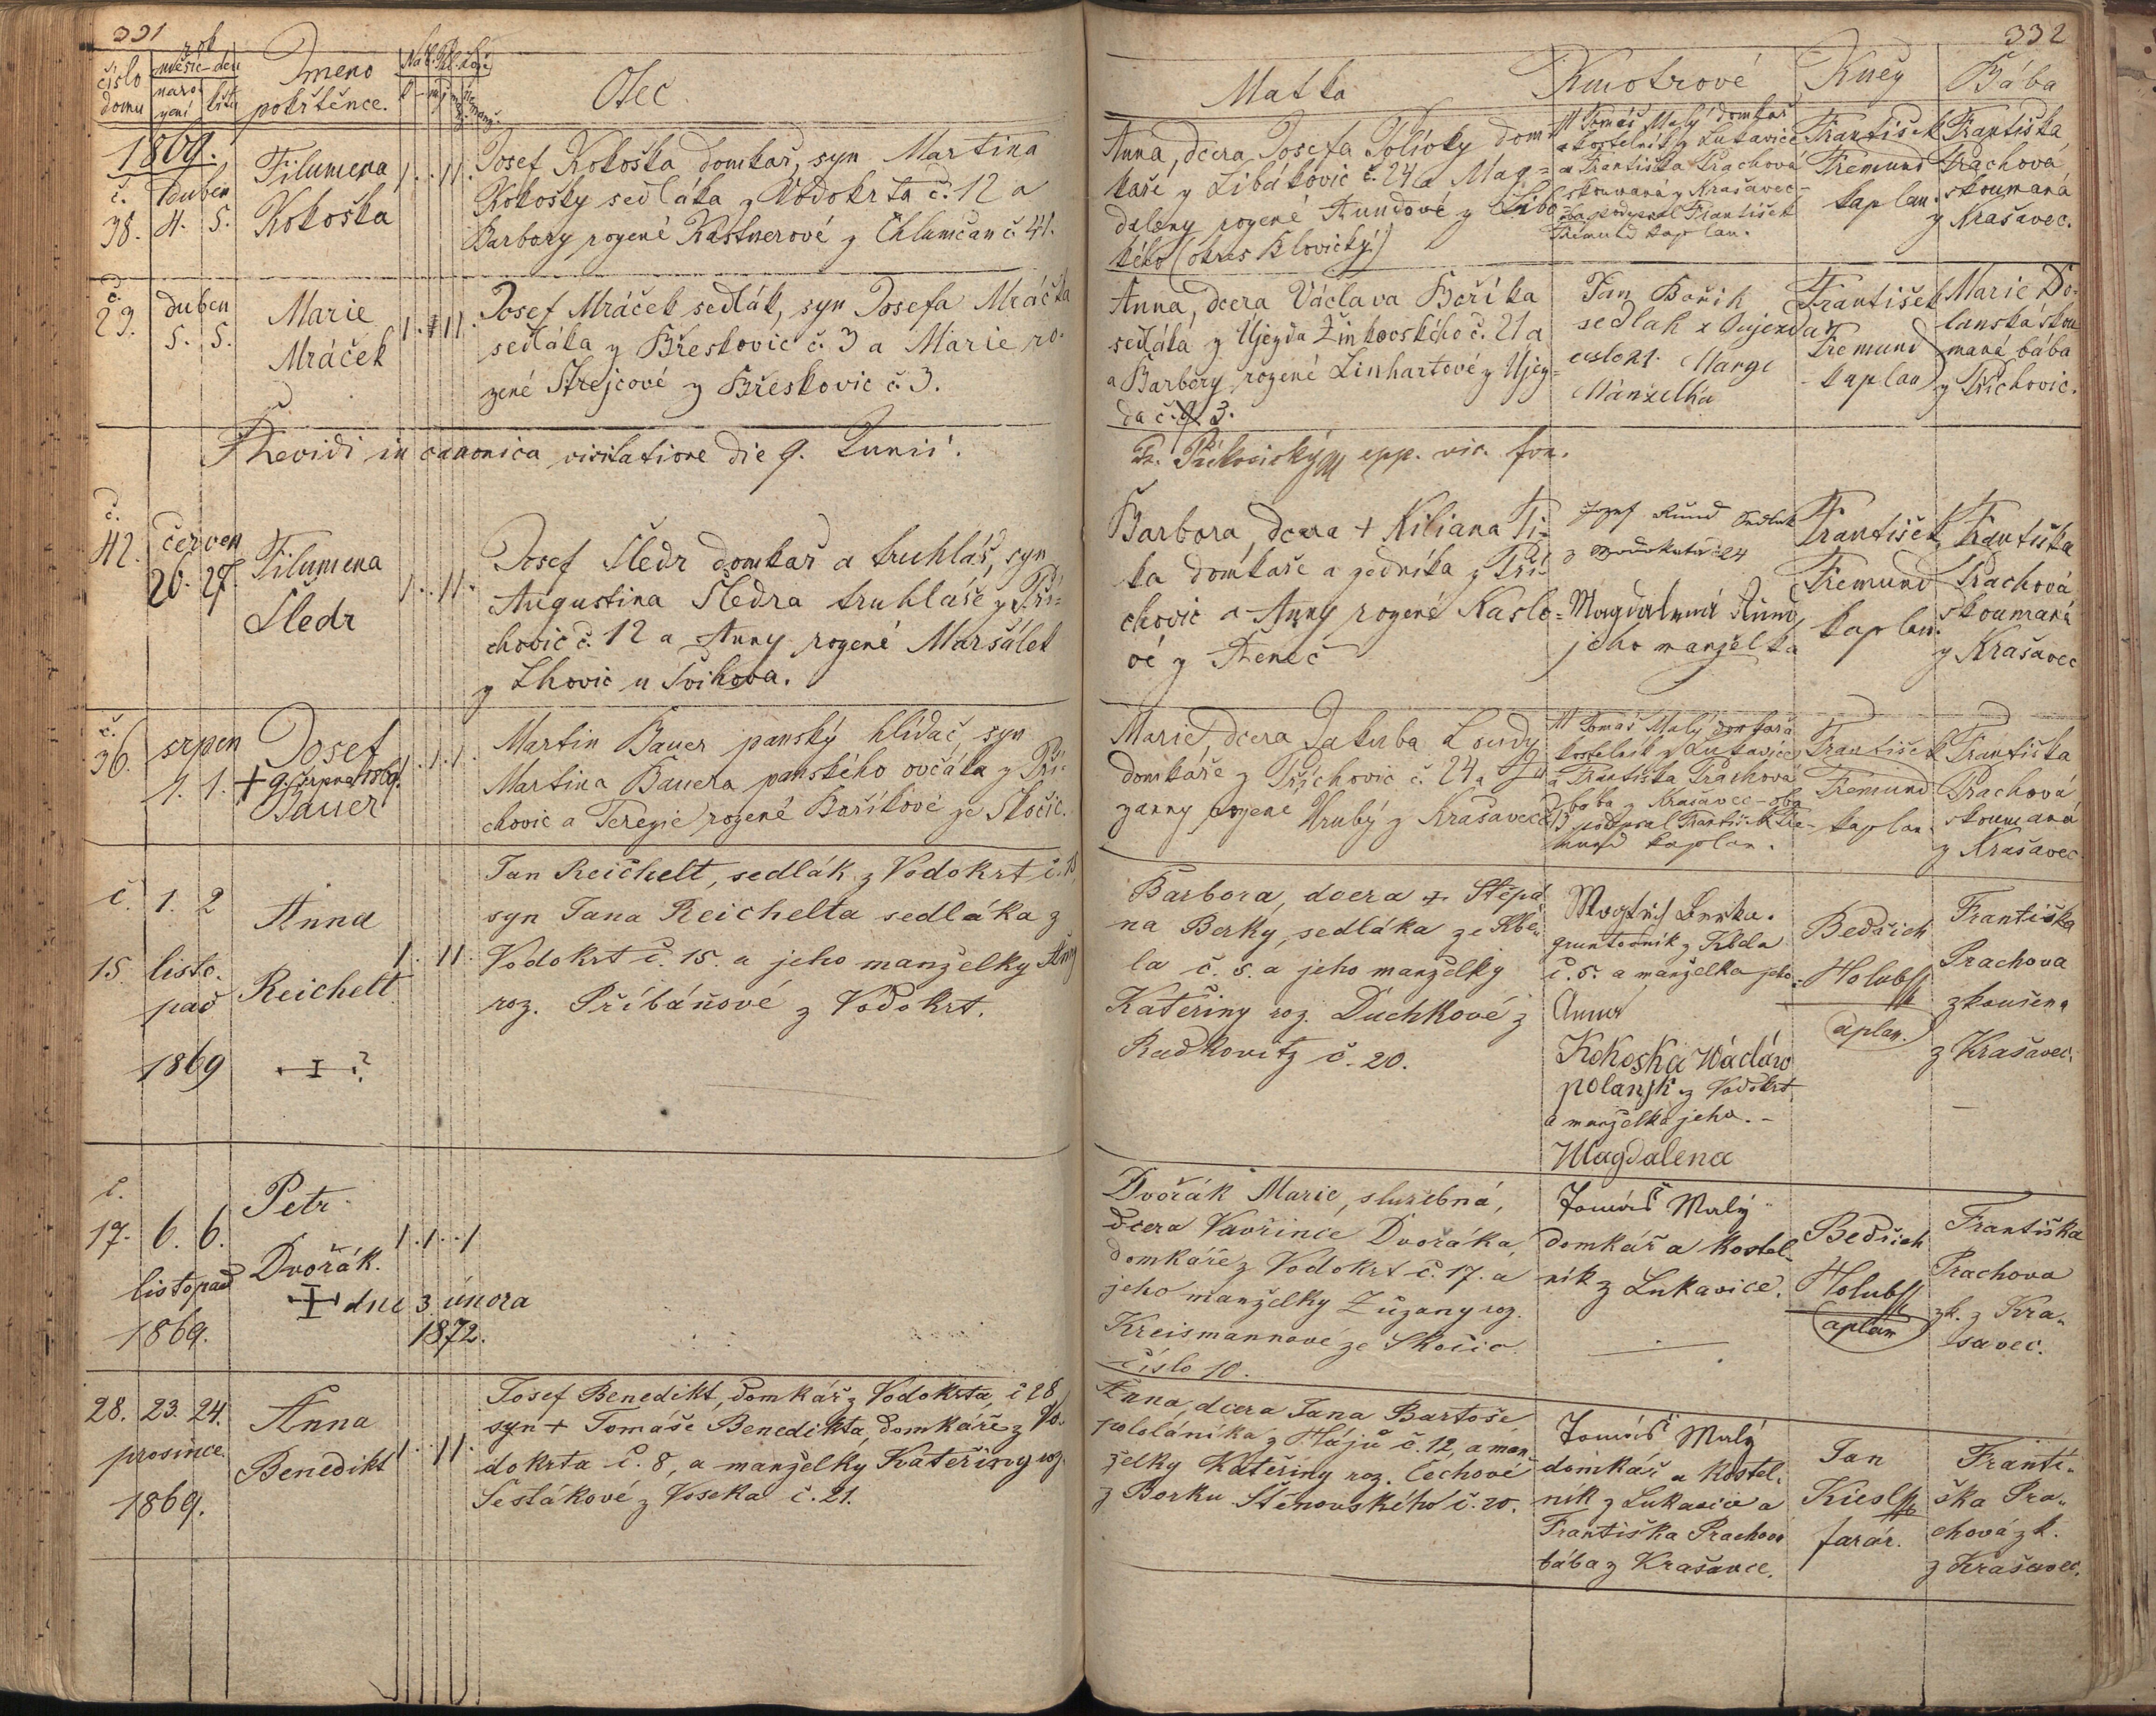 331
číslo
domu
rok
měsíc - den
naro-
zení
křtu
Jmeno
pokřtěnce.
Otec
1869.
č.
38.
duben
4. 5.
Filumena
Kokoška
1 . . 1 1 .
Josef Kokoška domkař, syn Martina
Kokošky sedláka z Vodokrta č. 12 a
Barbory rozené Kastnerové z Chlumčan č. 41.
č.
29.
duben
5. 5.
Marie
Mráček
Josef Mráček sedlák, syn Josefa Mráčka
sedláka z Břeskovic č. 3 a Marie ro-
zené Strejcové z Břeskovic č. 3.
Revidi in canonica visitatione die 9. Junii.
č.
42.
červen
26. 27.
Filumena
Šledr
1 . . 1 1 .
Josef Šledr domkař a truhlář, syn
Augustina Šledra truhláře z Při-
chovic č. 12 a Anny rozené Maršálek
z Lhovic u Švihova.
č.
36.
srpen
1. 1.
Josef
+ 9. srpna 1869.
Bauer
Martin Bauer panský hlídač, syn
Martina Bauera panského ovčáka z Při-
chovic a Terezie rozené Boříkové ze Skočic.
č.
15.
1. 2
listo-
pad
1869
Anna
Reichelt
?
1 . 1 1
Jan Reichelt, sedlák z Vodokrt č. 15
syn Jana Reichelta sedláka z
Vodokrt č. 15. a jeho manželky Anny
roz. Přibáňové z Vodokrt.
č.
17.
6. 6.
listopad
1869.
Petr
Dvořák.
dne 3. února
1872.
1 . 1 . . 1
28. 23. 24.
prosince
1869.
Anna
Benedikt
1 . . 1 1 .
Josef Benedikt, domkář z Vodokrta, č 28
syn + Tomáše Benedikta, domkáře z Vo-
dokrta č. 8, a manželky Kateřiny roz.
Šestákové z Voseka č. 21.
332
Matka
Kmotrové
Kněz
Bába
Anna, dcera Josefa Polívky dom-
kaře z Libákovic č. 24 a Mag-
daleny rozené Rundové z Libo-
kého (okres Blovický)
Tomáš Malý domkař
a kostelník z Lukavice
a Františka Prachová
skoumaná z Krašavec -
oba podepsal František
Fremund kaplan.
František
Fremund
kaplan.
Františka
Prachová
skoumaná
z Krašavec.
Anna, dcera Václava Boříka
sedláka z Újezda Žinkovského č. 21 a
a Barbory rozené Linhartové z Újez-
da č. 3.
Jan Bořik
sedlak z Oujezda
cislo 21. Marye
Manželka
František
Fremund
kaplan
Marie Do-
lanská skou
maná bába
z Přichovic.
epp. vic. for.
Barbora, dcera + Kiliana Ti-
ka domkaře a zedníka z Při-
chovic a Anny rozené Kaslo-
vé z Řeneč
Jozef Rund Sedlak
z Wodokrtu č 24
Magdalena Rund
jeho manželka
František
Fremund
kaplan.
Františka
Prachová
skoumaná
z Krašavec
Marie, dcera Jakuba Loudy
domkáře z Přichovic č. 24 a Zu
zanny rozené Hrubý z Krašavec č. 13
Tomáš Malý domkař a
kostelník z Lukavice
a Františka Prachová
bába z Krašavec - oba
podepsal František Fre-
mund kaplan.
František
Fremund
kaplan.
Františka
Prachová
skoumaná
z Krašavec
Barbora, dcera + Štěpá-
na Berky, sedláka ze Kbe-
la č. 5. a jeho manželky
Kateřiny roz. Duchkové z
Radkovitz č. 20.
Berka.
gruntovník z Kbela
č. 5. a manželka jeho
Anna
Kokoska Wácláw
polanjk z Vodokrt
a manželka jeho. -
Magdalena
Bedřich
Holub
kaplan.
Františka
Prachova
zkoušena
z Krašavec.
Dvořák Marie, služebná,
dcera Vavřince Dvořáka,
domkáře z Vodokrt č. 17. a
jeho manželky Zuzany roz.
Kreismannové ze Skočic.
číslo 10.
Tomáš Malý
domkář a kostel-
ník z Lukavice.
Bedřich
Holub
kaplan
Františka
Prachova
zk. z Kra-
šavec.
Anna, dcera Jana Bartoše
pololáníka z Hájů č. 12, a man-
želky Kateřiny roz. Čechové
z Borku Štěnovského č. 20.
Tomáš Malý
domkář a kostel-
ník z Lukavice a
Františka Prachova
bába z Krašavce.
Jan
Kiesl
farář.
Franti-
ška Pra-
chová zk.
z Krašavec.